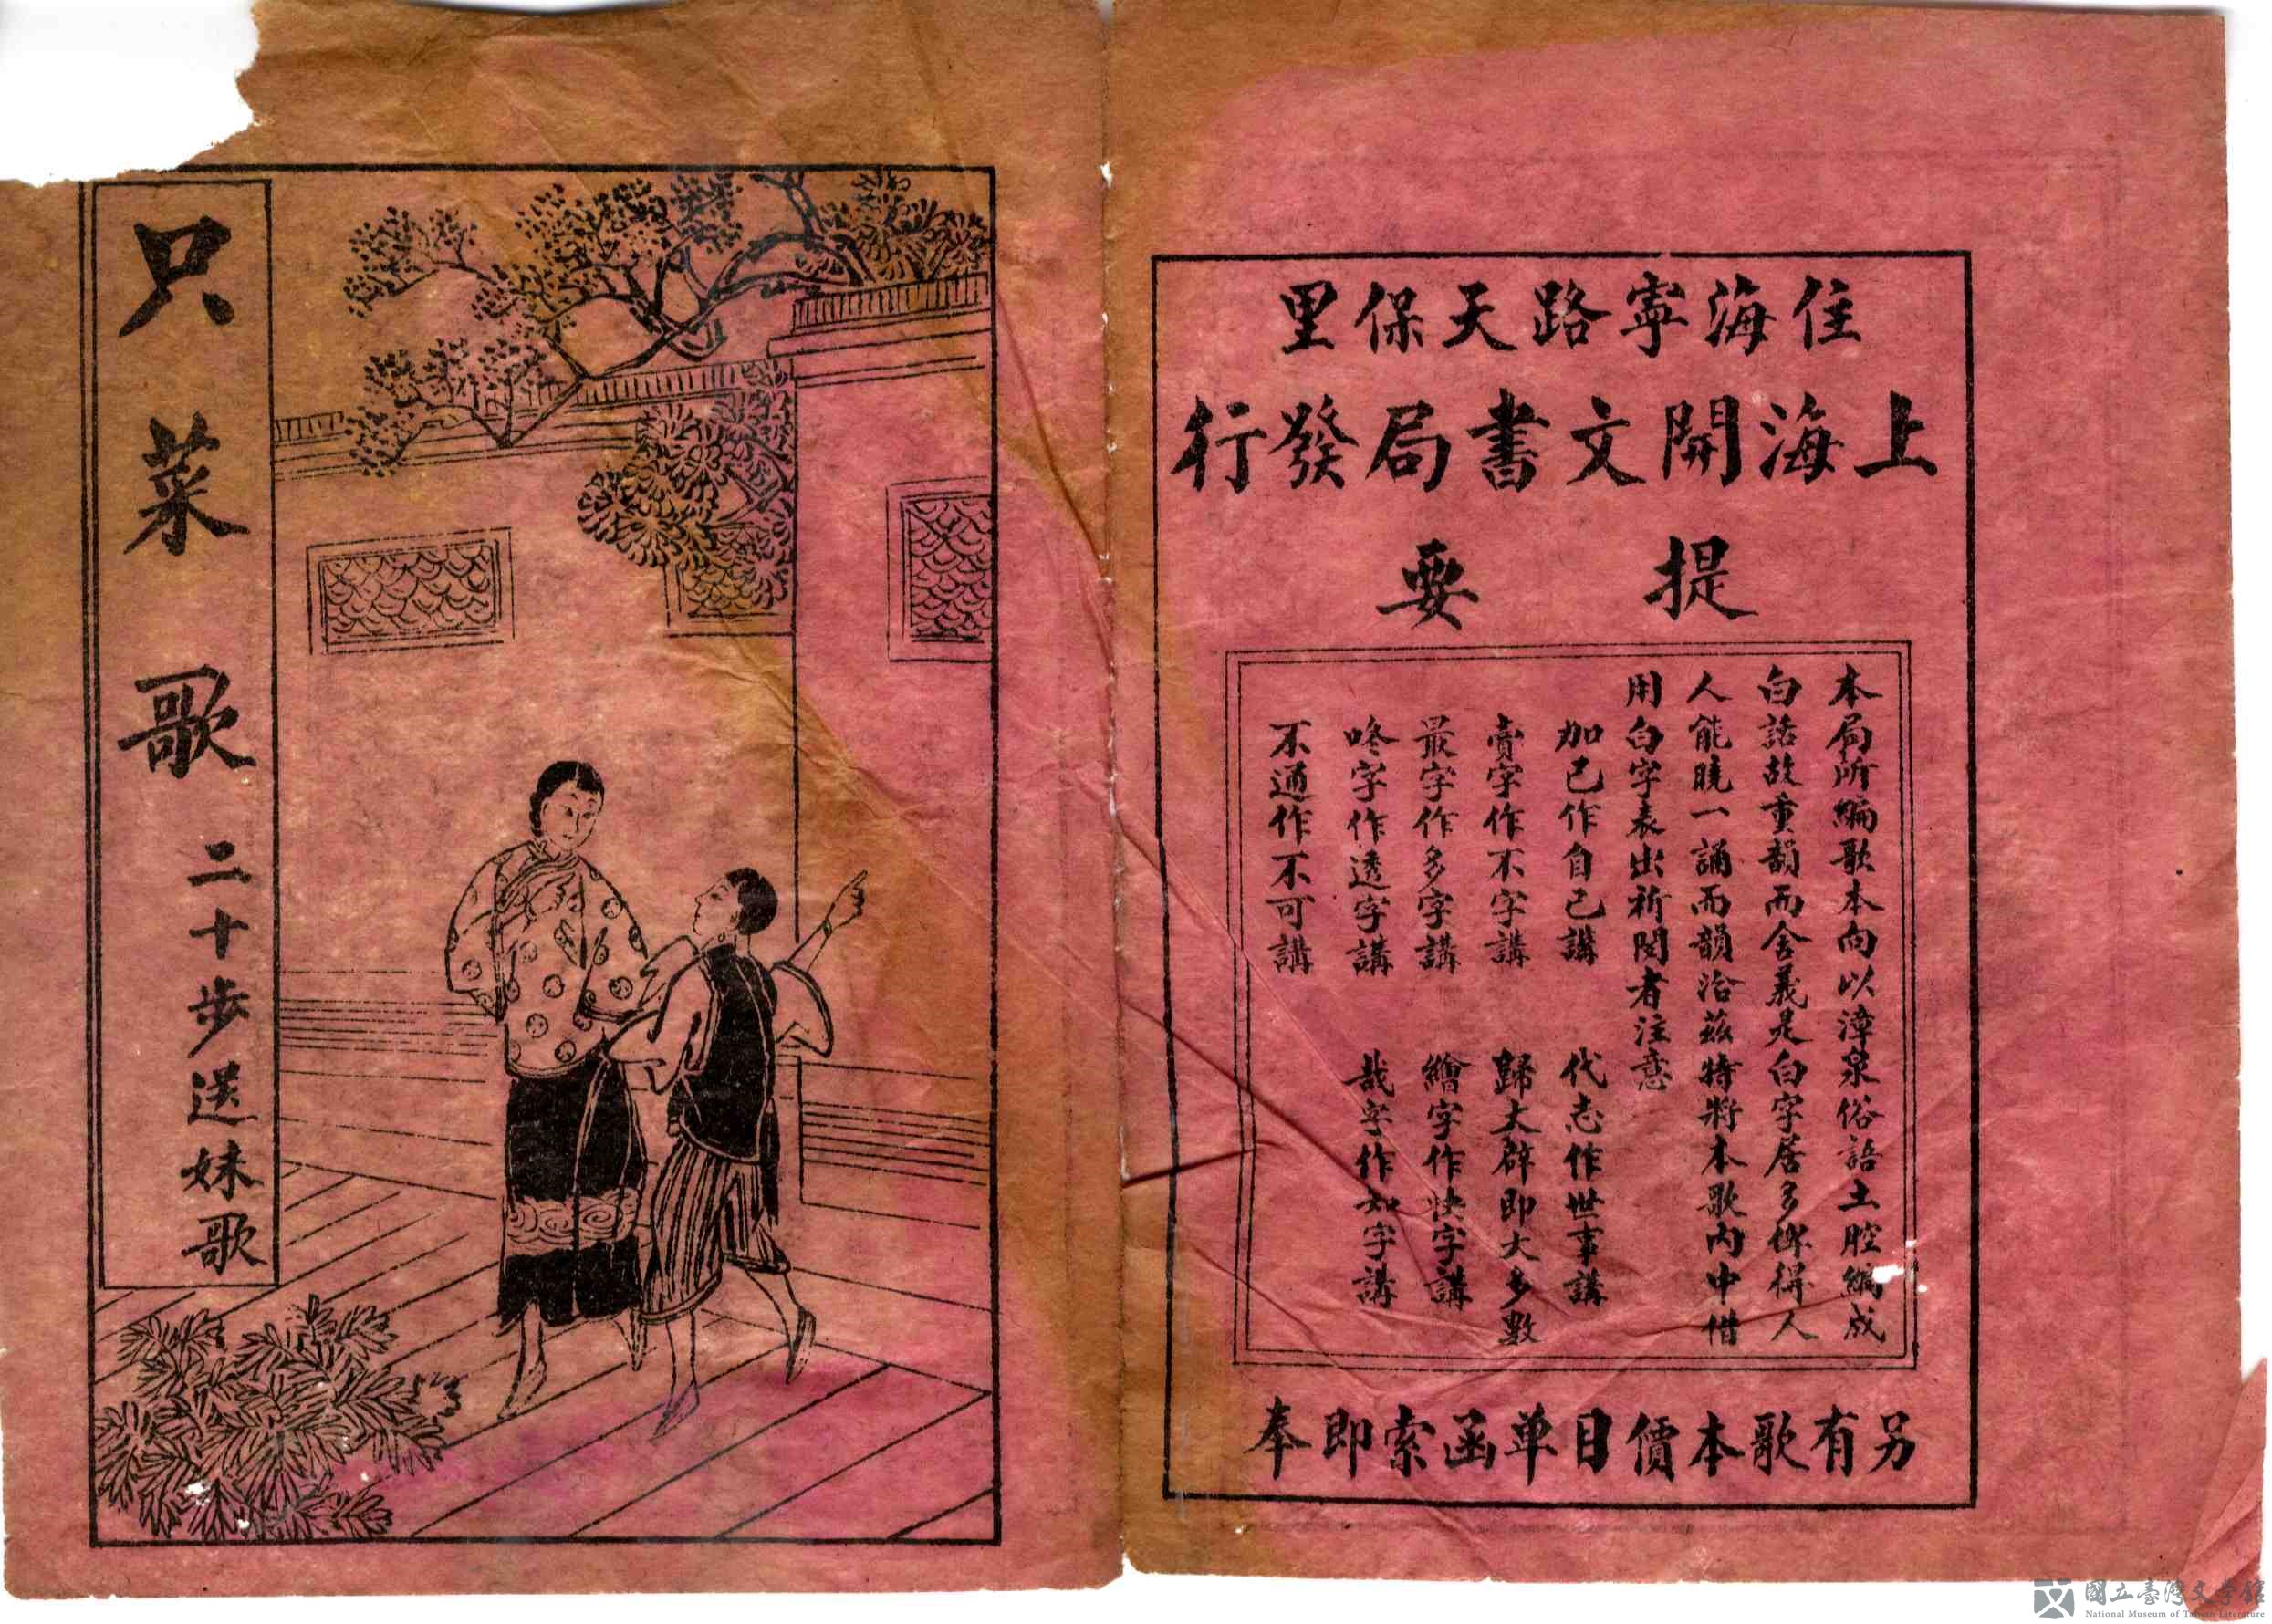 住海寧路天保里
上海開文書局發行
提要
本局所編歌本向以漳泉俗語土腔編成
白話故重韻而舍義是白字居多俾得人
人能曉一誦而韻洽茲特將本歌內中借
用白字表出祈閱者注意
加已作自己講 代志作世事講
賣字作不字講 歸大辟即大多數
最字作多字講 繪字作快字講
咚字作透字講 哉字作如字講
不通作不可講
另有歌本價目單函索即奉
只菜歌 二十步送妹歌
國立臺灣文學館
National Museum of Taiwan Literature